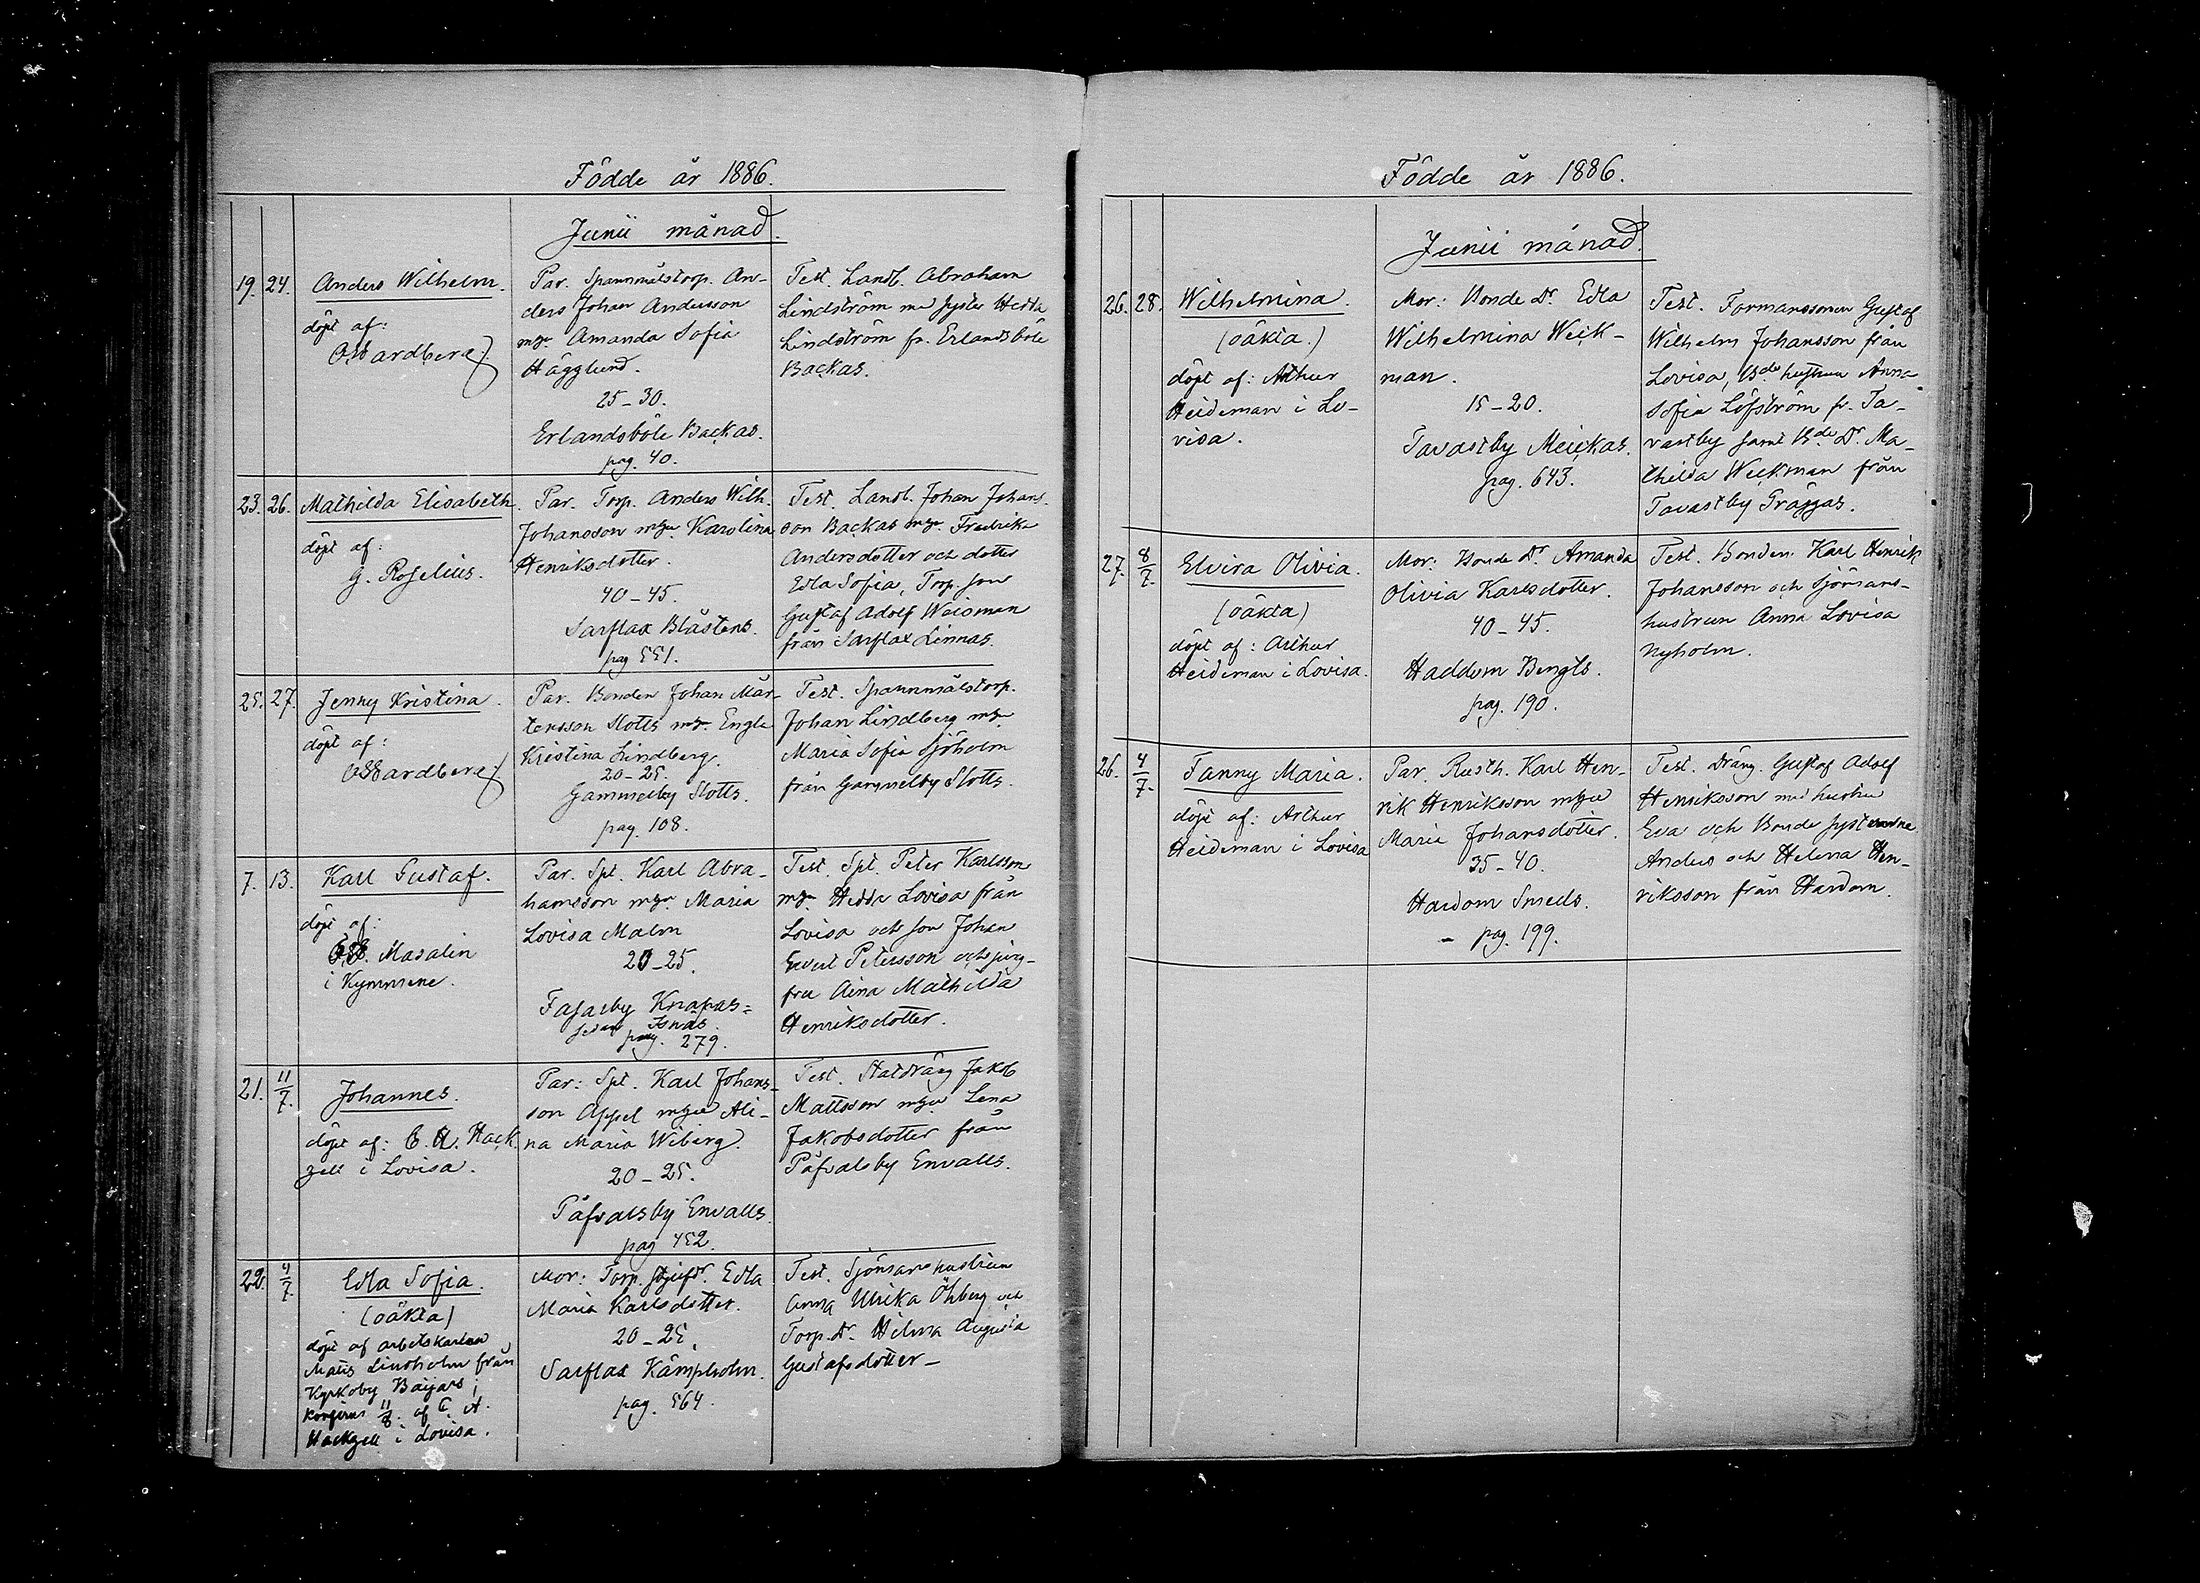 Födde år 1886.
Junii månad.
19. 24. Anders Wilhelm.
döpt af:
Wardberg
Par. Spannmålstorp. An-
ders Johan Andersson
mhu Amanda Sofia
Hägglund.
25-30.
Erlandsböle Backas.
pag. 40.
Test. Landb. Abraham
Lindström med syster Hedda
Lindström fr. Erlandsböle
Backas.
23. 26. Mathilda Elisabeth.
döpt af:
G. Roselius.
Par. Torp. Anders Wilh.
Johansson mhu Karolina
Henriksdotter.
40-45.
Sarflax Blåstens.
pag 551.
Test. Landb. Johan Johans-
son Backas mhu Fredrika
Andersdotter och dotter
Edla Sofia, Torp. son
Gustaf Adolf Weisman
från Sarflax Linnas.
25. 27. Jenny Kristina.
döpt af:
Wardberg
Par. Bonden Johan Mår-
tensson Slotts mhu Engla
Kristina Lindberg.
20-25.
Gammelby Slotts.
pag. 108.
Test. Spannmålstorp.
Johan Lindberg mhu
Maria Sofia Sjöholm
från Gammelby Slotts.
7. 13. Karl Gustaf.
döpt af:
Masalin
i Kymmene.
Par. Spt. Karl Abra-
hamsson mhu Maria
Lovisa Malm
20-25.
Fasarby Knapas=
Jonas.
pag. 279.
Test. Spt. Peter Karlsson
mhu Hedda Lovisa från
Lovisa och son Johan
Evert Petersson och jung-
fru Aina Mathilda
Henriksdotter.
21. 11/7. Johannes.
döpt af: C. A. Hack
zell i Lovisa.
Par: Spt. Karl Johans-
son Appel mhu Ali-
na Maria Wiberg.
20-25.
Påfvalsby Envalls.
pag 452.
Test. Statdräng Jakob
Mattsson mhu Lena
Jakobsdotter från
Påfvalsby Envalls.
22. 4/7. Edla Sofia.
(oäkta)
döpt af arbetskarlen
Matts Lindholm från
Kyrkoby Baijars;
konfirm. 11/8. af C. A.
Hackzell i Lovisa.
Mor: Torp. Styfdr. Edla
Maria Karlsdotter.
20-25.
Sarflax Kämpholm.
pag. 564.
Test. Sjömanshustrun
Anna Ulrika Öhberg och
Torp. dr. Hilma Augusta
Gustafsdotter-
Födde år 1886.
Junii månad.
26. 28. Wilhelmina.
(oäkta.)
döpt af: Arthur
Heideman i Lo-
visa.
Mor: Bonde Dr. Edla
Wilhelmina Weck-
man.
15-20.
Tavastby Meickas.
pag. 643.
Test. Formanssonen Gustaf
Wilhelm Johansson från
Lovisa, Bde hustrun Anna
Sofia Löfström fr. Ta-
vastby samt Bde Dr. Ma-
thilda Weckman från
Tavastby Gräggas.
27. 8/7. Elvira Olivia.
(oäkta)
döpt af: Arthur
Heideman i Lovisa.
Mor: Bonde Dr. Amanda
Olivia Karlsdotter.
40-45.
Haddom Bengts.
pag. 190.
Test. Bonden Karl Henrik
Johansson och Sjömans-
hustrun Anna Lovisa
Nyholm.
26. 4/7. Fanny Maria.
döpt af: Arthur
Heideman i Lovisa
Par. Rusth. Karl Hen-
rik Henriksson mhu
Maria Johansdotter.
35-40.
Hardom Smeds.
- pag. 199.
Test. Dräng. Gustaf Adolf
Henriksson med hustru
Eva och Bonde syst
Anders och Helena Hen-
riksson från Hardom.